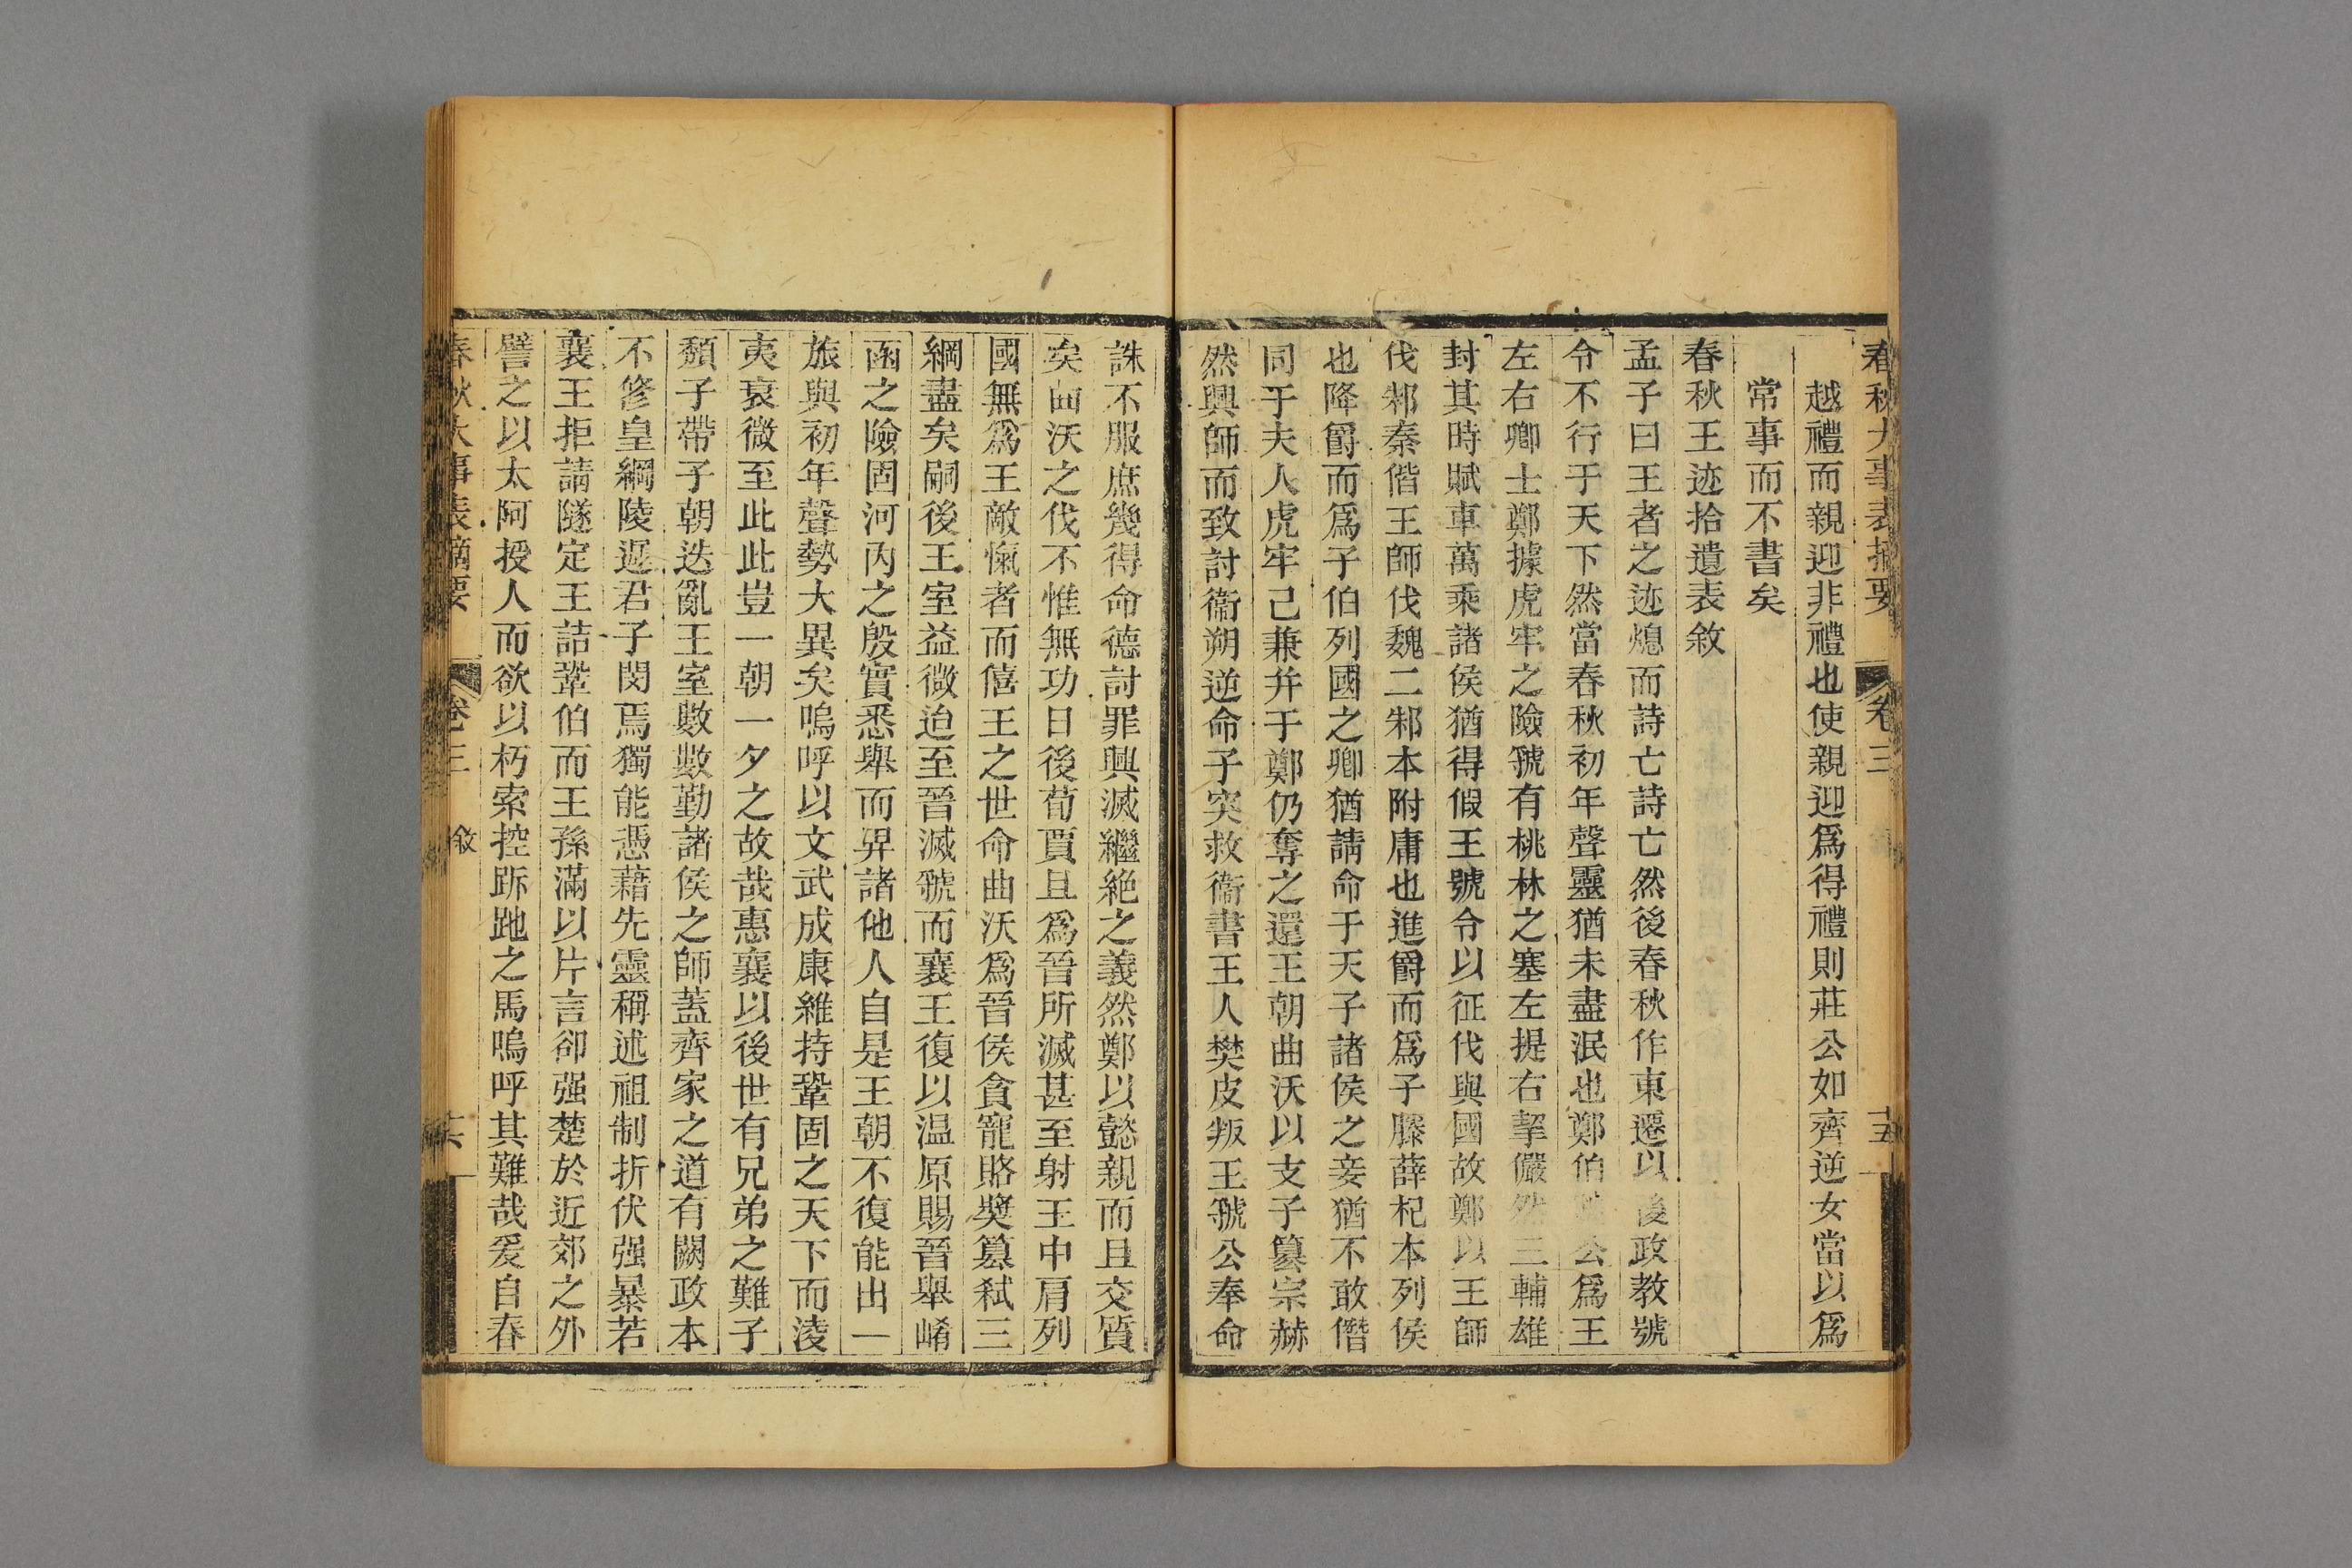 春秋大事表摘要 卷三 十五
越禮而親迎非禮也使親迎爲得禮則莊公如齊逆女當以爲
常事而不書矣
春秋王迹拾遺表敘
孟子曰王者之迹熄而詩亡詩亡然後春秋作東遷以後政教號
令不行于天下然當春秋初年聲靈猶未盡泯也鄭伯公爲王
左右卿士鄭據虎牢之險虢有桃林之塞左提右挈儼然三輔雄
封其時賦車萬乘諸侯猶得假王號令以征伐與國故鄭以王師
伐邾秦偕王師伐魏二邾本附庸也進爵而爲子滕薛杞本列侯
也降爵而爲子伯列國之卿猶請命于天子諸侯之妾猶不敢僭
同于夫人虎牢己兼并于鄭仍奪之還王朝曲沃以支子篡宗赫
然興師而致討衞朔逆命子突救衞書王人樊皮叛王虢公奉命
誅不服庶幾得命德討罪興滅繼絶之義然鄭以懿親而且交質
矣曲沃之伐不惟無功日後荀賈且爲晉所滅甚至射王中肩列
國無爲王敵愾者而僖王之世命曲沃爲晉侯貪寵賂奬簒弑三
綱盡矣嗣後王室益微迨至晉滅虢而襄王復以温原賜晉舉崤
函之險固河內之殷實悉舉而畀諸他人自是王朝不復能出一
旅與初年聲勢大異矣嗚呼以文武成康維持鞏固之天下而淩
夷衰微至此此豈一朝一夕之故哉惠襄以後世有兄弟之難子
頽子帶子朝迭亂王室數數勤諸侯之師蓋齊家之道有闕政本
不修皇綱陵遲君子閔焉獨能憑藉先靈稱述祖制折伏强暴若
襄王拒請隧定王詰鞏伯而王孫滿以片言卻强楚於近郊之外
譬之以太阿授人而欲以朽索控跅跑之馬嗚呼其難哉爰自春
春秋大事表摘要 卷三 敘 十六